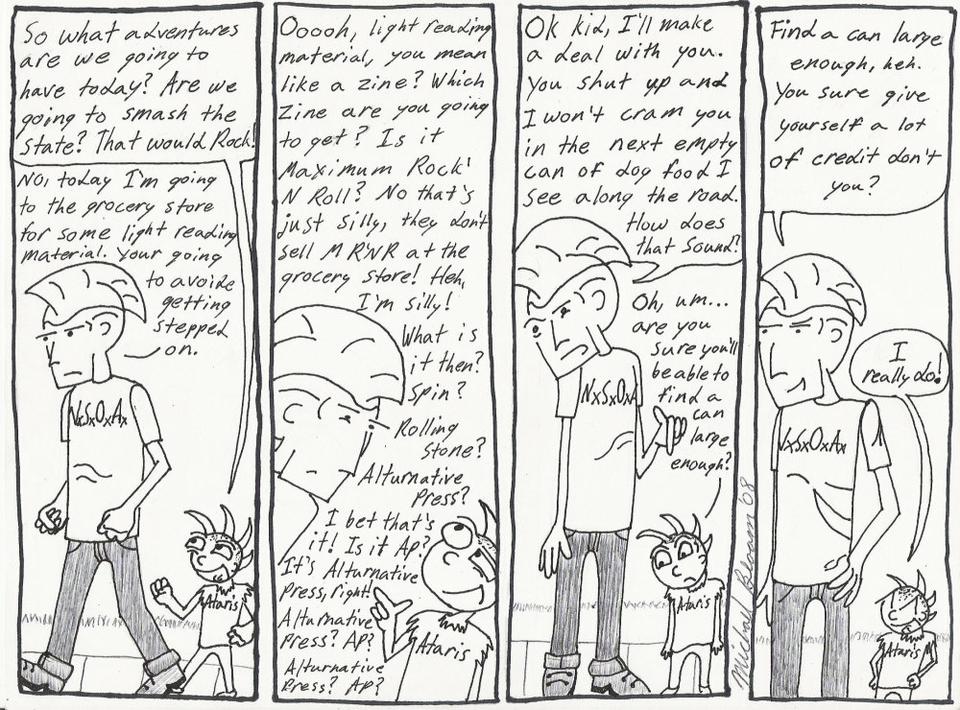 So what adventures
are we going to
have today? Are we
going to smash the
state? That would Rock!
No, today I'm going
to the grocery store
for some light reading
material. Your going
to avoide
getting
stepped
on.
NxSxOxAx
Ataris
Ooooh, light reading
material, you mean
like a zine? Which
zine are you going
to get? Is it
Maximum Rock'
N Roll? No that's
just silly, they don't
sell MR'NR at the
grocery store! Heh,
I'm silly!
What is
it then?
Spin?
Rolling
Stone?
Alternative
Press?
I bet that's
it! Is it AP?
It's Alternative
Press, right!
Alternative
Press? AP?
Alternative
Press? AP?
Ataris
Ok kid, I'll make
a deal with you.
You shut up and
I won't cram you
in the next empty
can of dog food I
see along the road.
How does
that sound?
Oh, um...
are you
sure you'll
be able to
find a
can
large
enough?
NxSxOxA
Ataris
Find a can large
enough, heh.
You sure give
yourself a lot
of credit don't
you?
I
really do!
NxSxOxAx
Ataris
Michael '08